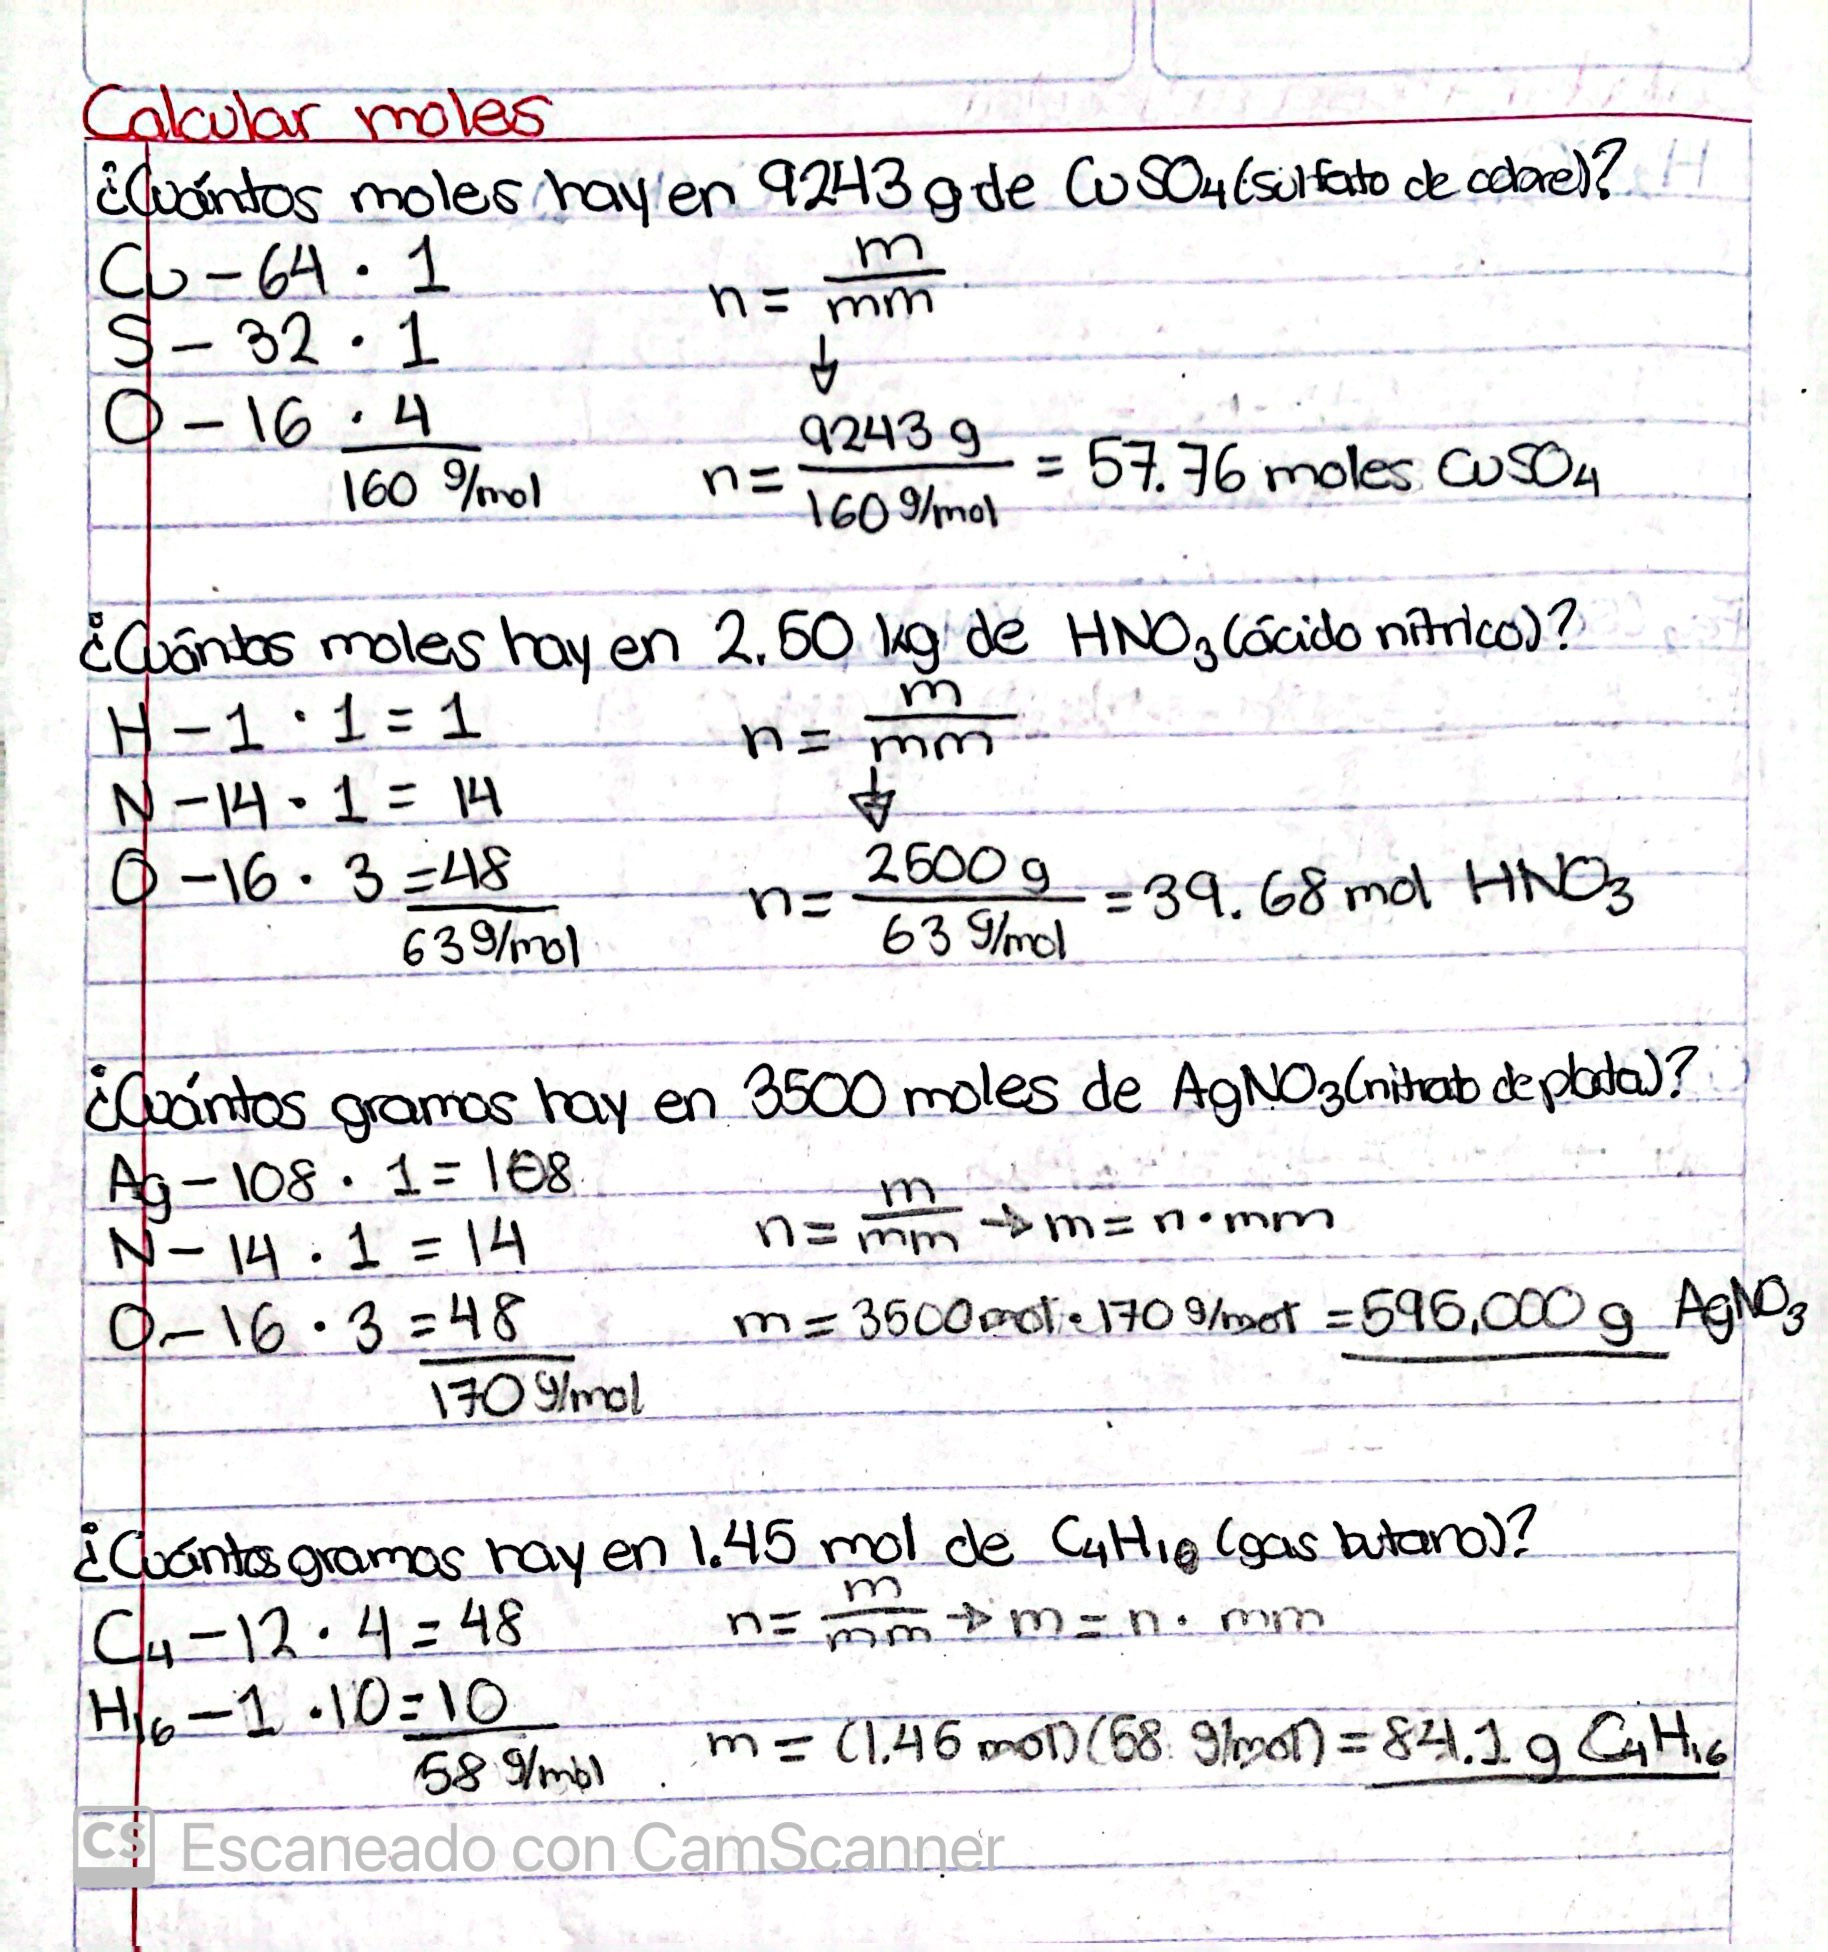 Calcular moles
¿Cuántos moles hay en 9243 g de CuSO4 (sulfato de cobre)?
Cu - 64 · 1
n = m/mm
S - 32 · 1
↓
O - 16 · 4
160 g/mol
n = 9243 g / 160 g/mol = 57.76 moles CuSO4
¿Cuántos moles hay en 2.50 kg de HNO3 (ácido nítrico)?
H - 1 · 1 = 1
n = m/mm
N - 14 · 1 = 14
↓
O - 16 · 3 = 48
63 g/mol
n = 2500 g / 63 g/mol = 39.68 mol HNO3
¿Cuántos gramos hay en 3500 moles de AgNO3 (nitrato de plata)?
Ag - 108 · 1 = 108
n = m/mm → m = n · mm
N - 14 · 1 = 14
O - 16 · 3 = 48
170 g/mol
m = 3500 mol · 170 g/mol = 595,000 g AgNO3
¿Cuántos gramos hay en 1.45 mol de C4H10 (gas butano)?
C4 - 12 · 4 = 48
n = m/mm → m = n · mm
H16 - 1 · 10 = 10
58 g/mol
m = (1.45 mol) (58 g/mol) = 84.1 g C4H16
CS Escaneado con CamScanner